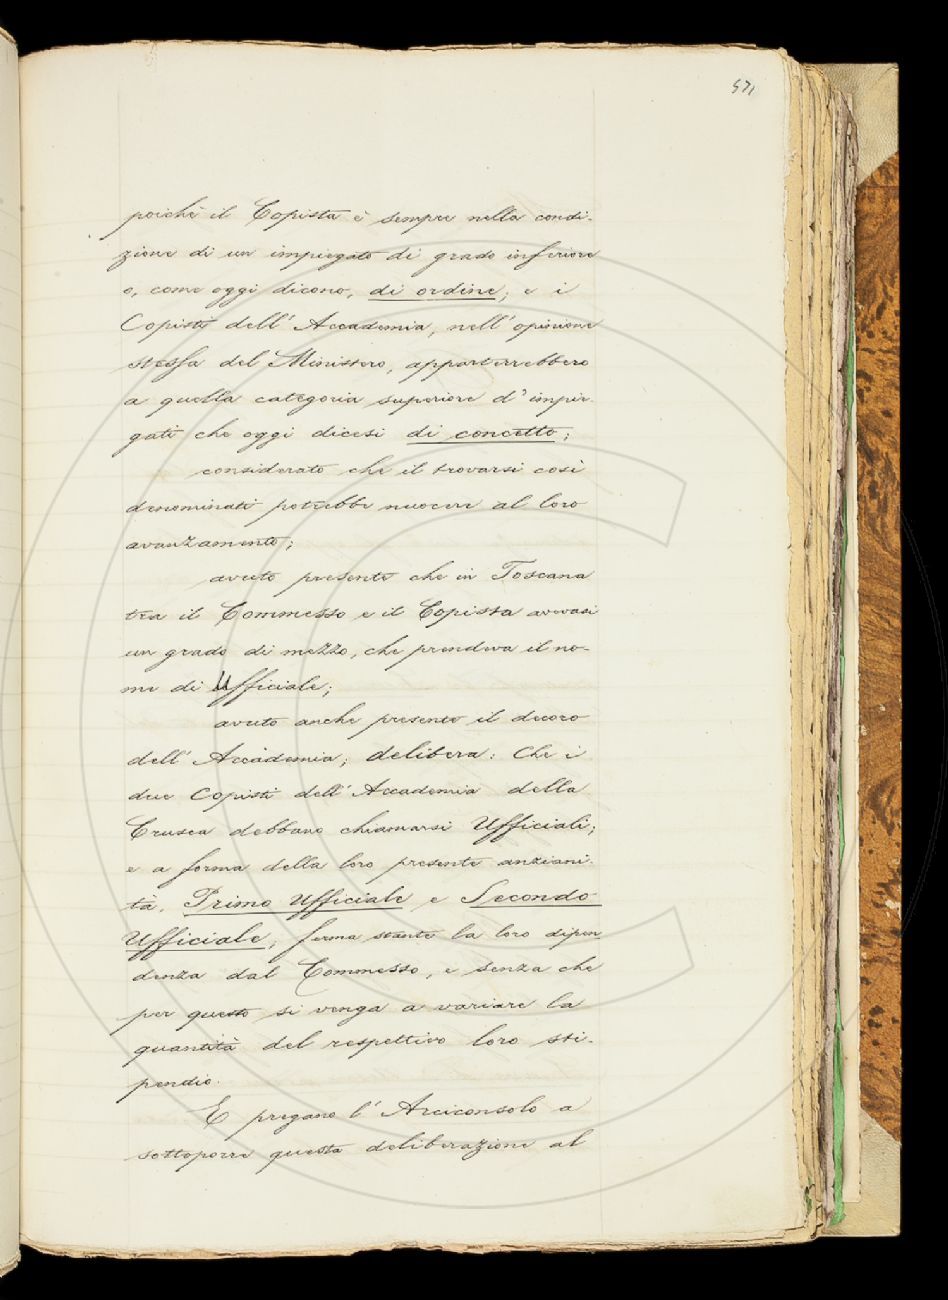 571
poichè il Copista è sempre nella condi-
zione di un impiegato di grado inferiore
o, come oggi dicono, di ordine; e i
Copisti dell' Accademia, nell' opinione
stessa del Ministero, apparterrebbero
a quella categoria superiore d' impie-
gati che oggi dicesi di concetto;
considerato che il trovarsi così
denominati potrebbe nuocere al loro
avanzamento;
avuto presente che in Toscana
tra il Commesso e il Copista avevasi
un grado di mezzo, che prendeva il no-
me di Ufficiale;
avuto anche presente il decoro
dell' Accademia; delibera: Che i
due Copisti dell' Accademia della
Crusca debbano chiamarsi Ufficiali;
e a forma della loro presente anziani-
tà, Primo Ufficiale e Secondo
Ufficiale; ferma stante la loro dipen
denza dal Commesso, e senza che
per questo si venga a variare la
quantità del respettivo loro sti-
pendio.
E pregano l' Arciconsolo a
sottoporre questa deliberazione al